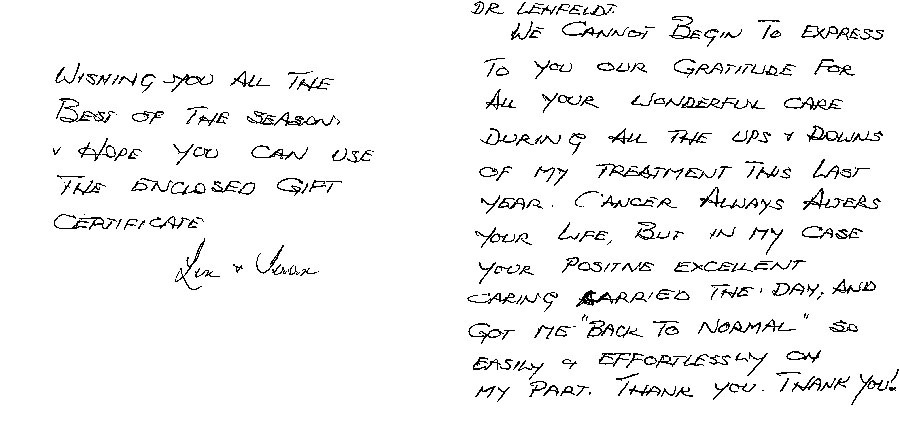 WISHING YOU ALL THE
BEST OF THE SEASON,
+ HOPE YOU CAN USE
THE ENCLOSED GIFT
CERTIFICATE
DR LEHFELDT.
WE CANNOT BEGIN TO EXPRESS
TO YOU OUR GRATITUDE FOR
ALL YOUR WONDERFUL CARE
DURING ALL THE UPS + DOWNS
OF MY TREATMENT THIS LAST
YEAR. CANCER ALWAYS ALTERS
YOUR LIFE, BUT IN MY CASE
YOUR POSITIVE EXCELLENT
CARING CARRIED THE DAY, AND
GOT ME "BACK TO NORMAL" SO
EASILY & EFFORTLESSLY ON
MY PART. THANK YOU. THANK YOU!